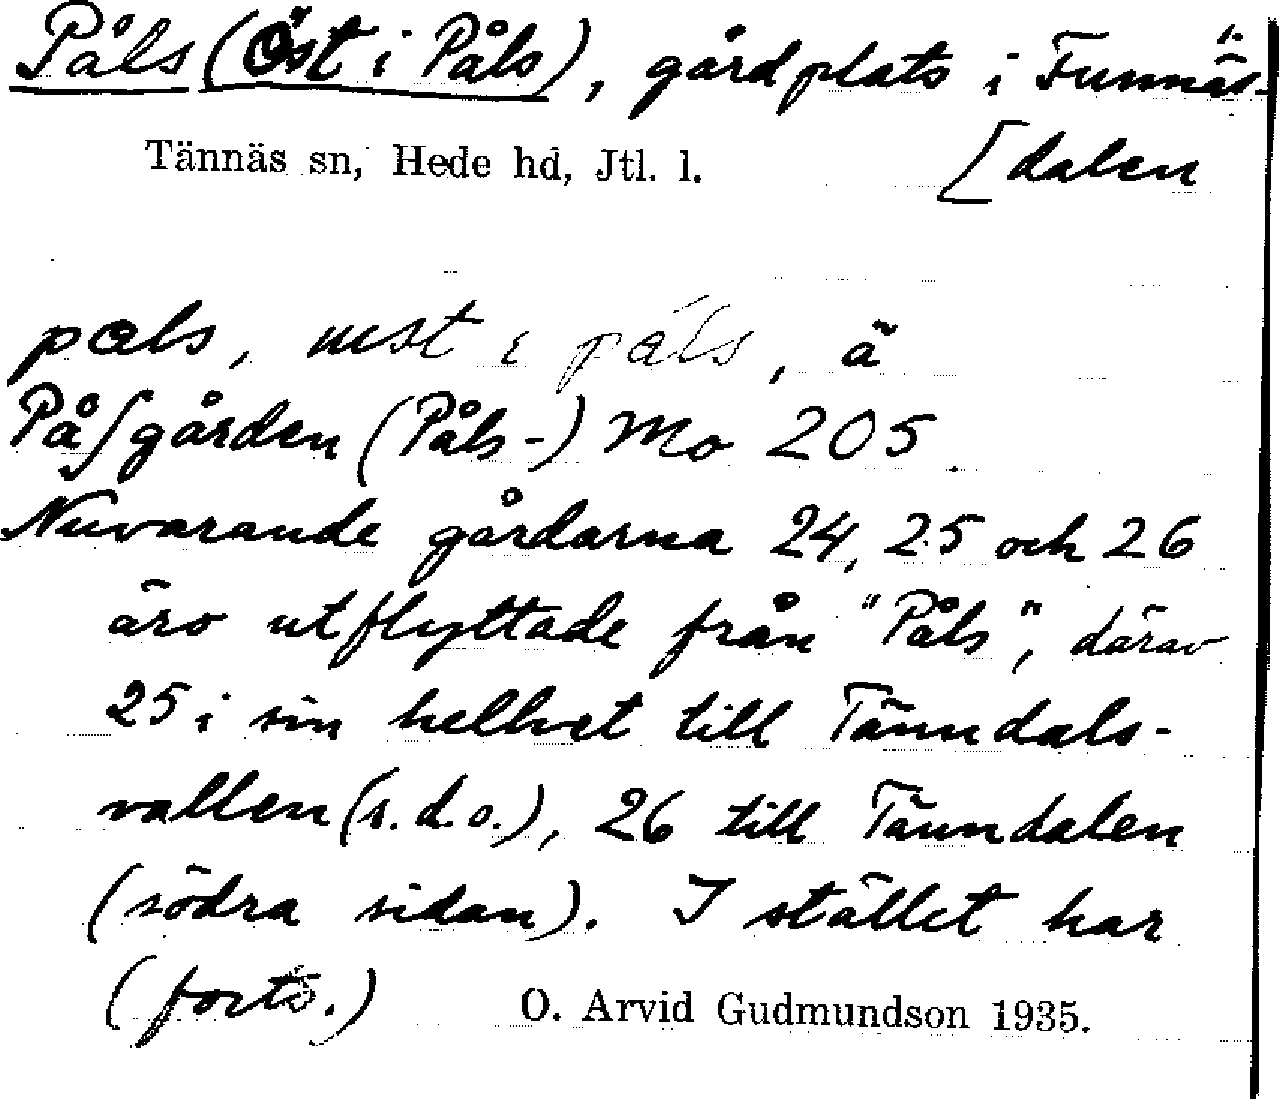 Påls (Öst i Påls), gårdplats i Funnäs-
Tännäs sn, Hede hd, Jtl. l. [dalen
pals, ust i pals, ä
Påſgården (Påls-) Mo 205.
Nuvarande gårdarna 24, 25 och 26
äro utflyttade från "Påls", därav
25 i sin helhet till Tänndals-
vallen (s.d.o.), 26 till Tänndalen
(södra sidan). I stället har
(forts.) O. Arvid Gudmundson 1935.